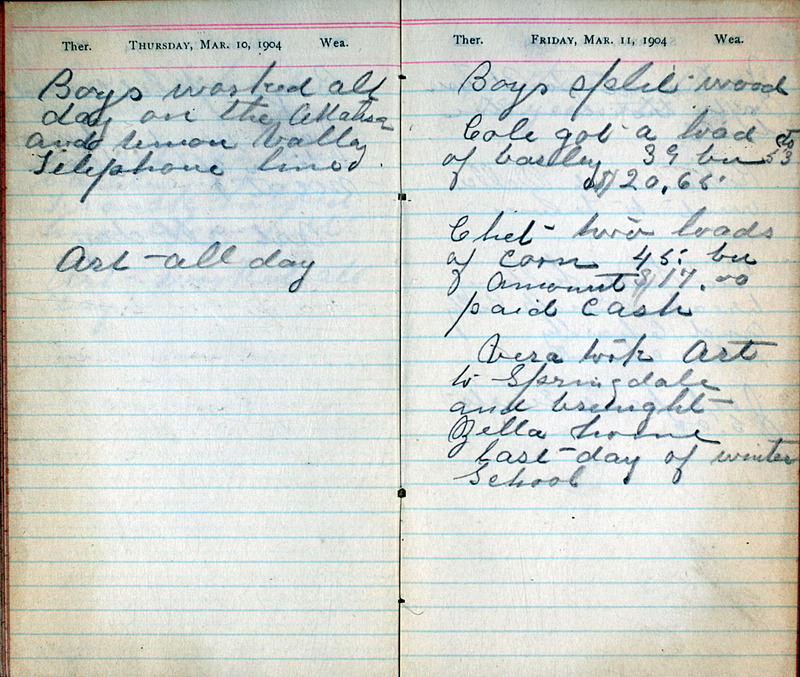 Ther. THURSDAY, MAR. 10, 1904 Wea.
Boys worked all
day on the
and Lemon Valley
Telephone line.
Art - all day
Ther. FRIDAY, MAR. 11, 1904 Wea.
Boys split wood
Cole got a load
of barley 39 bu 53
$20.65
Chet - two loads
of corn 45 bu
Amount $17.00
paid Cash
Vera took Art
to Springdale
and brought
Zella home
last day of winter
School